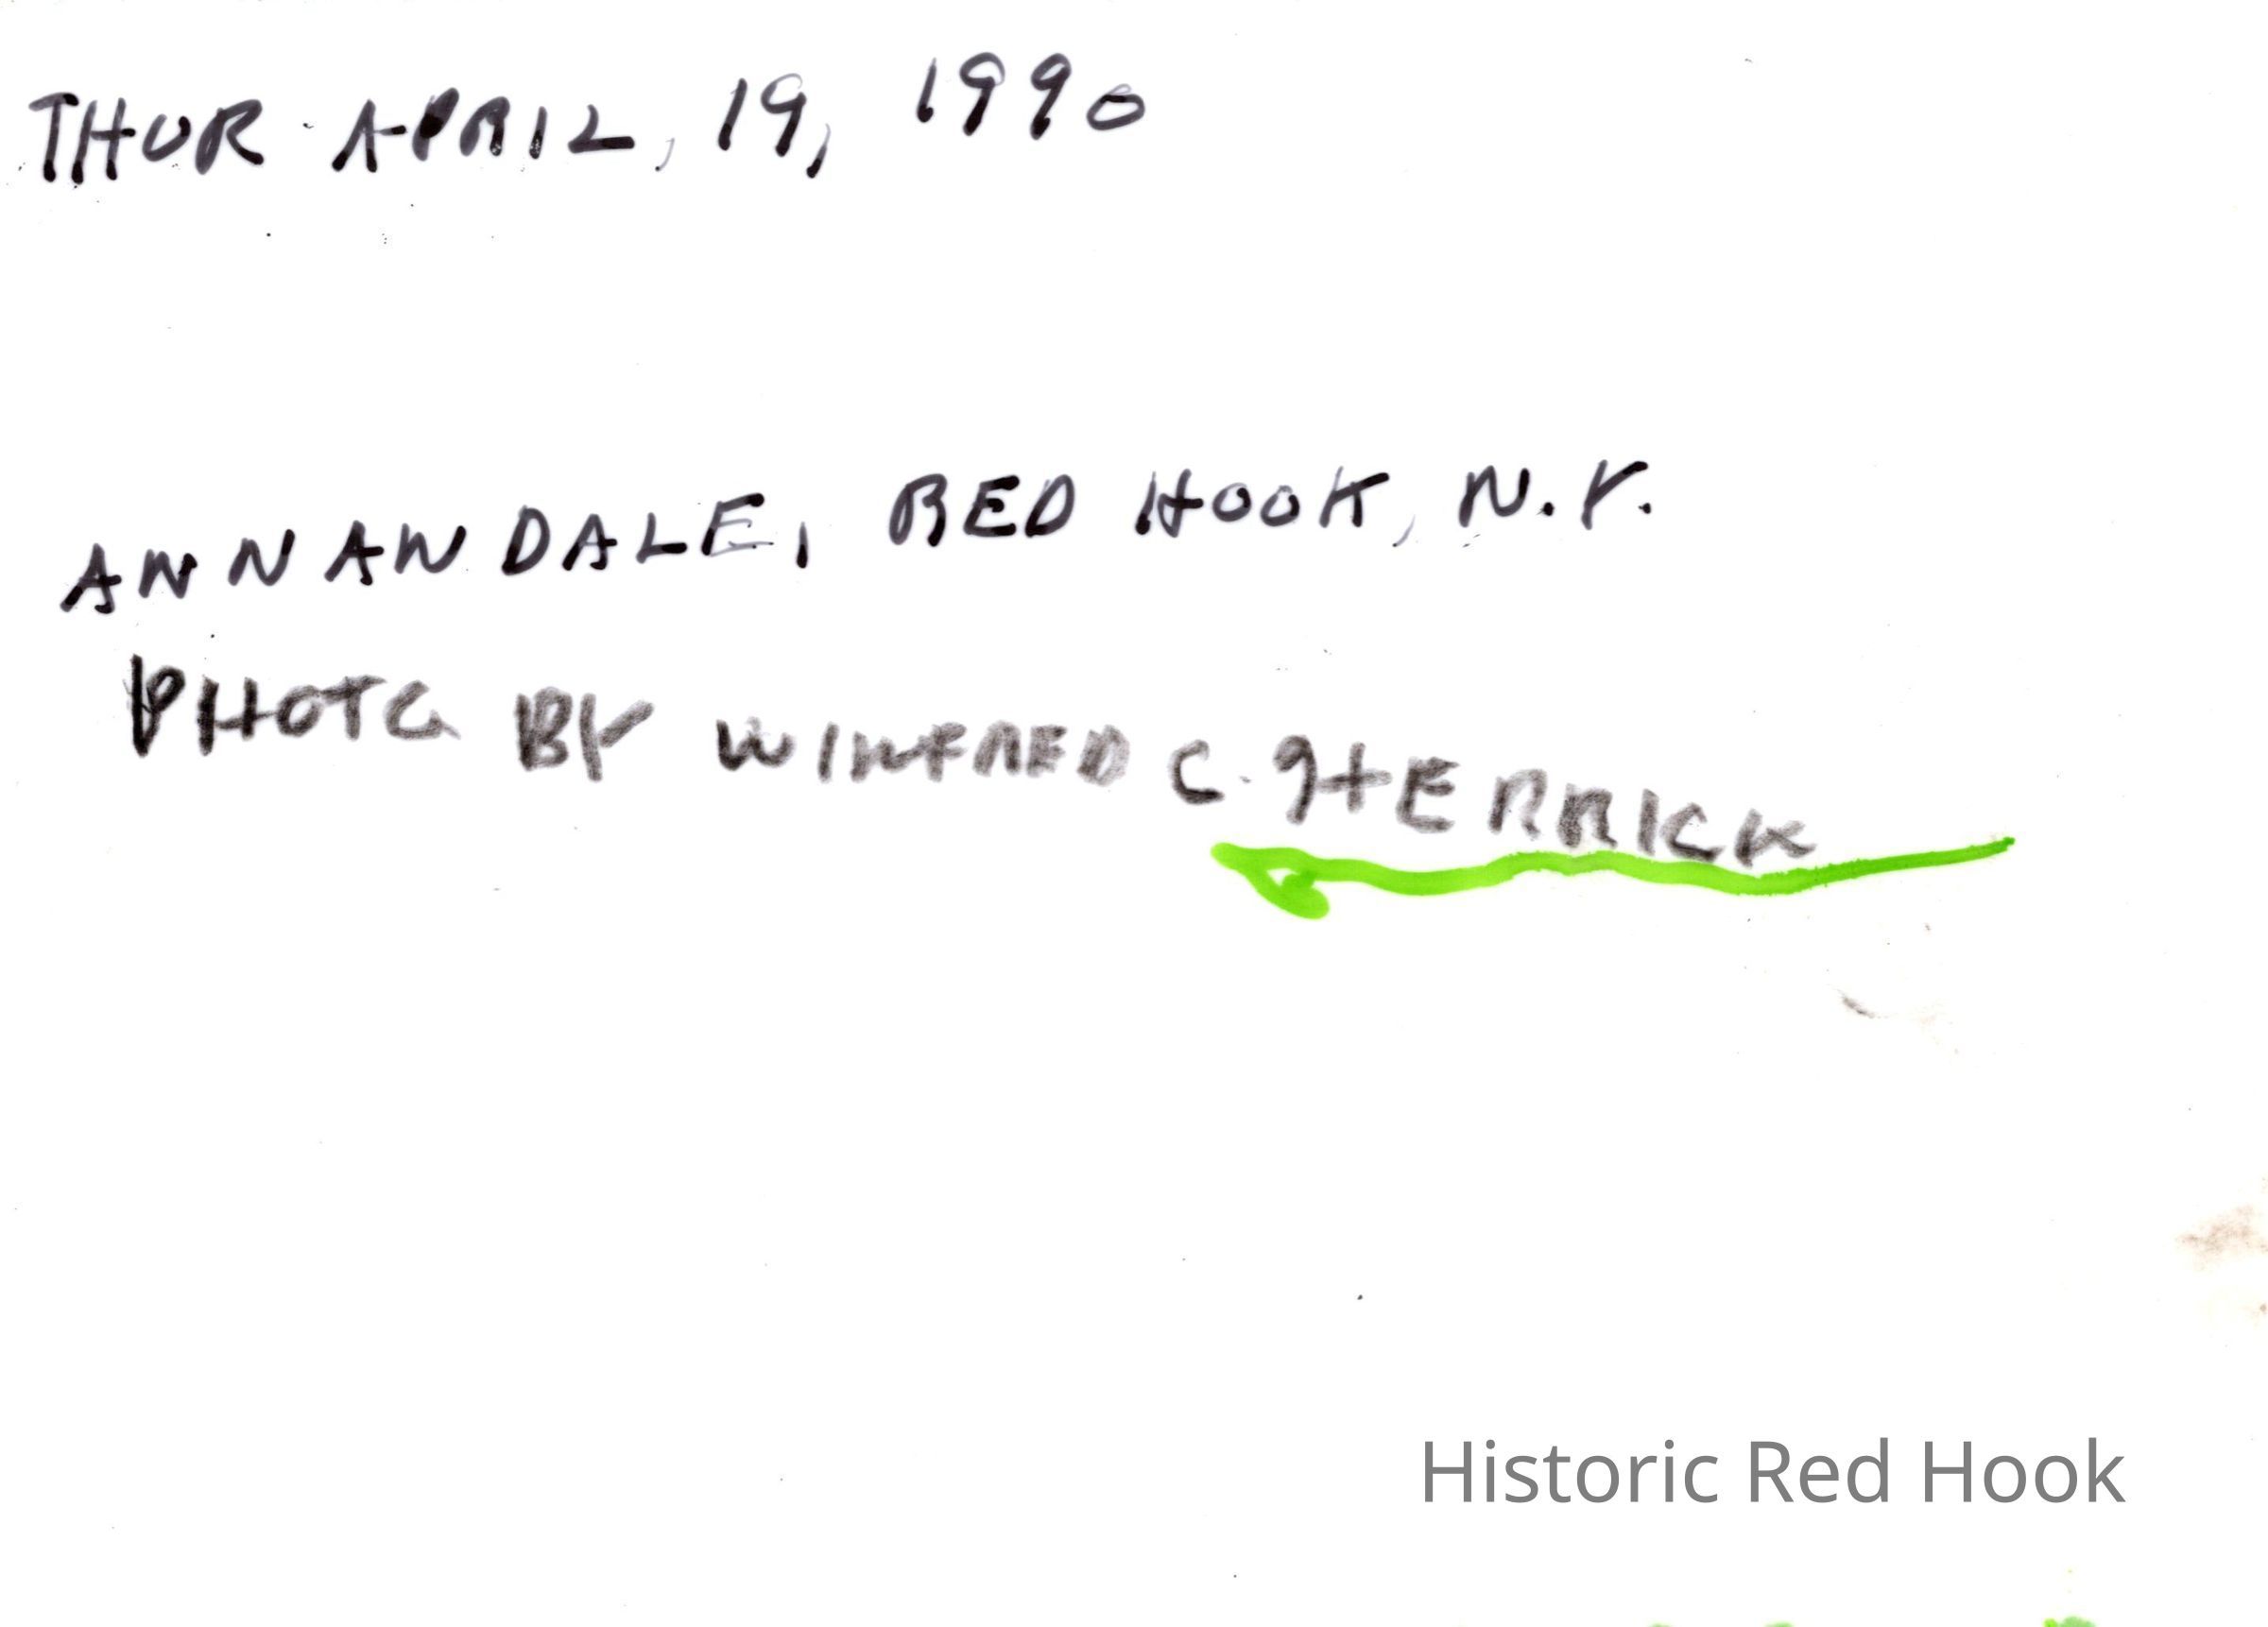 THUR APRIL, 19, 1990
ANNANDALE, RED HOOK, N.Y.
PHOTO BY WINFRED C. HERRICK
Historic Red Hook